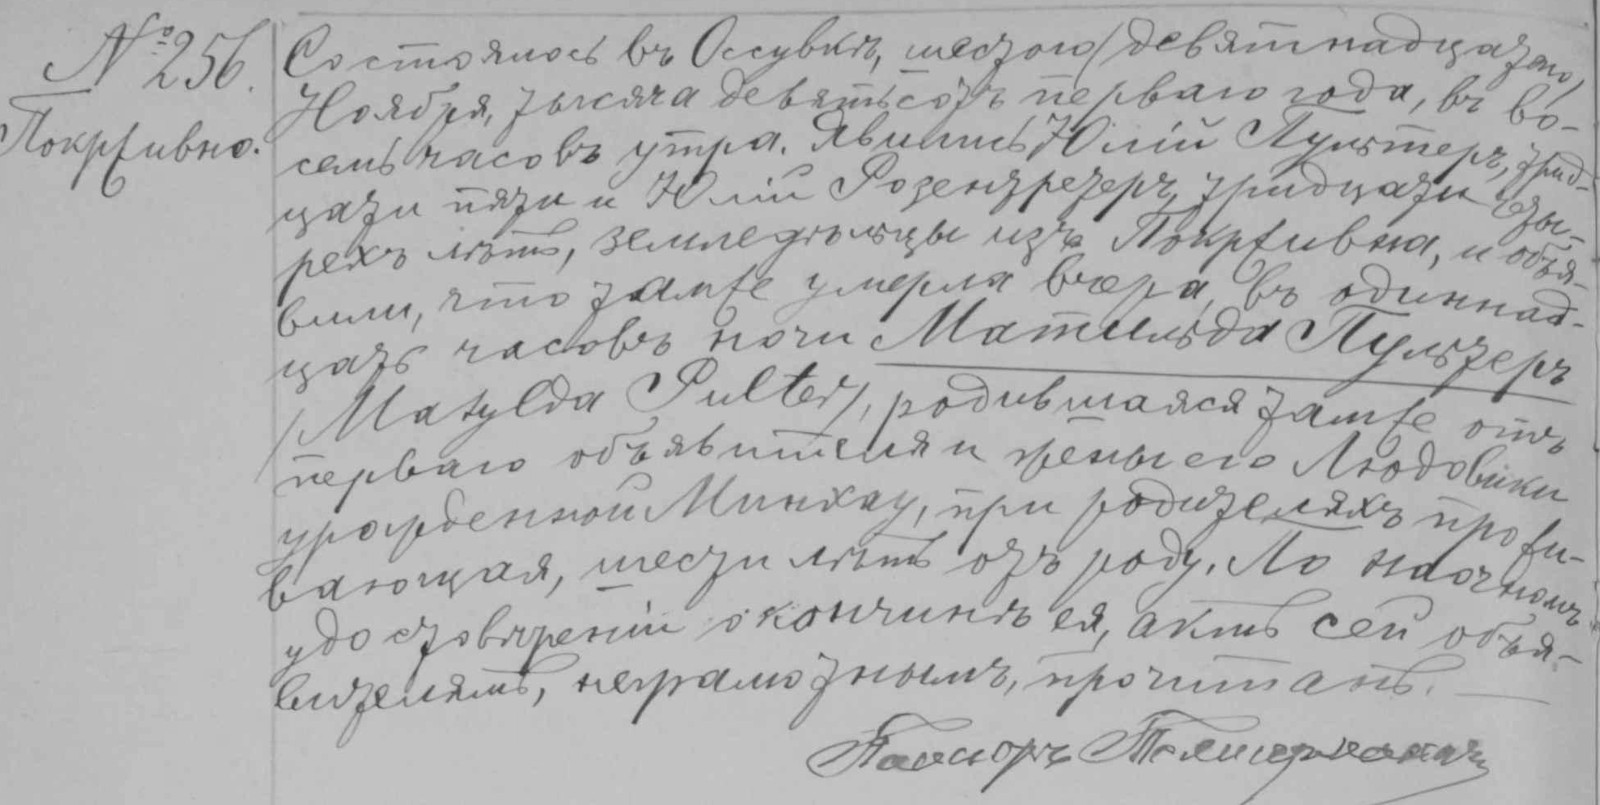 №256.
Покрживно.
Состоялось въ Оссувкѣ, шестого/девятнадцатаго/
Ноября, тысяча девятьсотъ перваго года, въ во-
семь часовъ утра. Явились Юлій Пультеръ, трид-
цати пяти и Юлій Розентретеръ, тридцати четы-
рехъ лѣтъ, земледѣльцы изъ Покрживна, и объя-
вили, что тамже умерла вчера, въ одиннад-
цать часовъ ночи Матильда Пультеръ
/Matylda Pulter/, родившаяся тамже отъ
перваго объявителя и жены его Людовики
урожденной Минхау, при родителяхъ прожи-
вающая, шести лѣтъ отъ роду. По наочномъ
удостовѣреніи о кончинѣ ея, актъ сей объя-
вителямъ, неграмотнымъ, прочитанъ.
Пасторъ